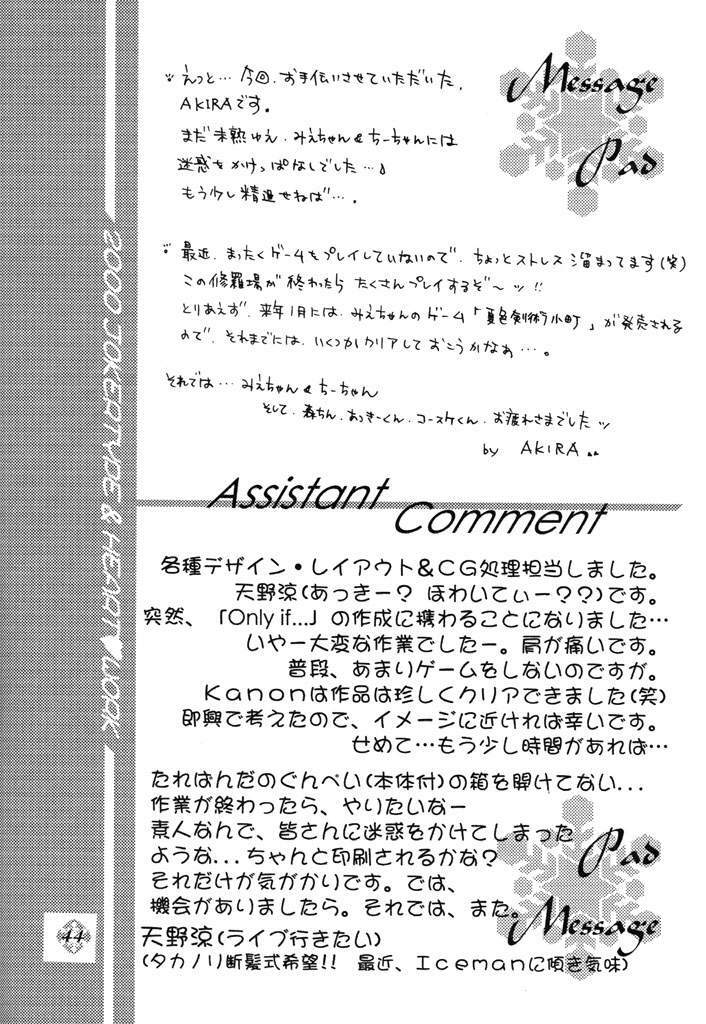 Message
Pad
えっと… 今回、お手伝いさせていただいた、
AKIRAです。
まだ未熟ゆえ、みえちゃん&ちーちゃんには
迷惑をかけっぱなしでした…♪
もう少し精進せねば…。
最近、まったくゲームをプレイしていないので、ちょっとストレス溜まってます(笑)
この修羅場が終わったら たくさんプレイするぞ〜ッ!!
とりあえず、来年1月には、みえちゃんのゲーム「夏色剣術小町」が発売される
ので、それまでには、いくつかクリアしておこうかなぁ…。
それでは… みえちゃん&ちーちゃん
そして、森ちん、あっきーくん、コースケくん、お疲れさまでしたッ
by AKIRA
2000 JOKERTYPE & HEART♥WORK
Assistant
Comment
各種デザイン・レイアウト&CG処理担当しました。
天野涼(あっきー? ほわいてぃー??)です。
突然、「Only if...」の作成に携わることになりました…
いやー大変な作業でしたー。肩が痛いです。
普段、あまりゲームをしないのですが。
Kanonは作品は珍しくクリアできました(笑)
即興で考えたので、イメージに近ければ幸いです。
せめて…もう少し時間があれば…
たればんだのぐんぺい(本体付)の箱を開けてない...
作業が終わったら、やりたいなー
素人なんで、皆さんに迷惑をかけてしまった
ような...ちゃんと印刷されるかな?
それだけが気がかりです。では、
機会がありましたら。それでは、また。
天野涼(ライブ行きたい)
(タカノリ断髪式希望!! 最近、Icemanに傾き気味)
Pad
Message
44